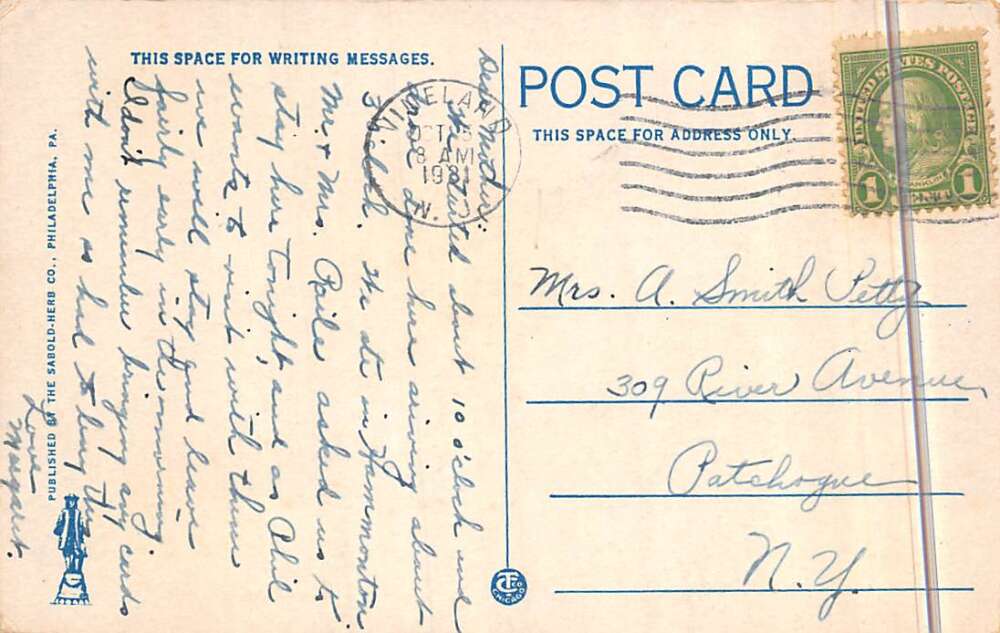 THIS SPACE FOR WRITING MESSAGES.
Dear Mother:
We started about 10 o'clock and
have done here arriving about
3 o'clock. We ate in Hammonton
Mr. & Mrs. Raile asked us to
stay here tonight and as Phil
wants to visit with them
we will stay and leave
fairly early in the morning.
I don't remember bringing any cards
with me so had to buy this
Love
Margaret.
PUBLISHED BY THE SABOLD-HERB CO., PHILADELPHIA, PA.
POST CARD
THIS SPACE FOR ADDRESS ONLY.
VINELAND
OCT 15
8 AM
1931
N.J.
UNITED STATES POSTAGE
FRANKLIN
1 1
Mrs. A. Smith Petty
309 River Avenue,
Patchogue
N.Y.
CT CO
CHICAGO